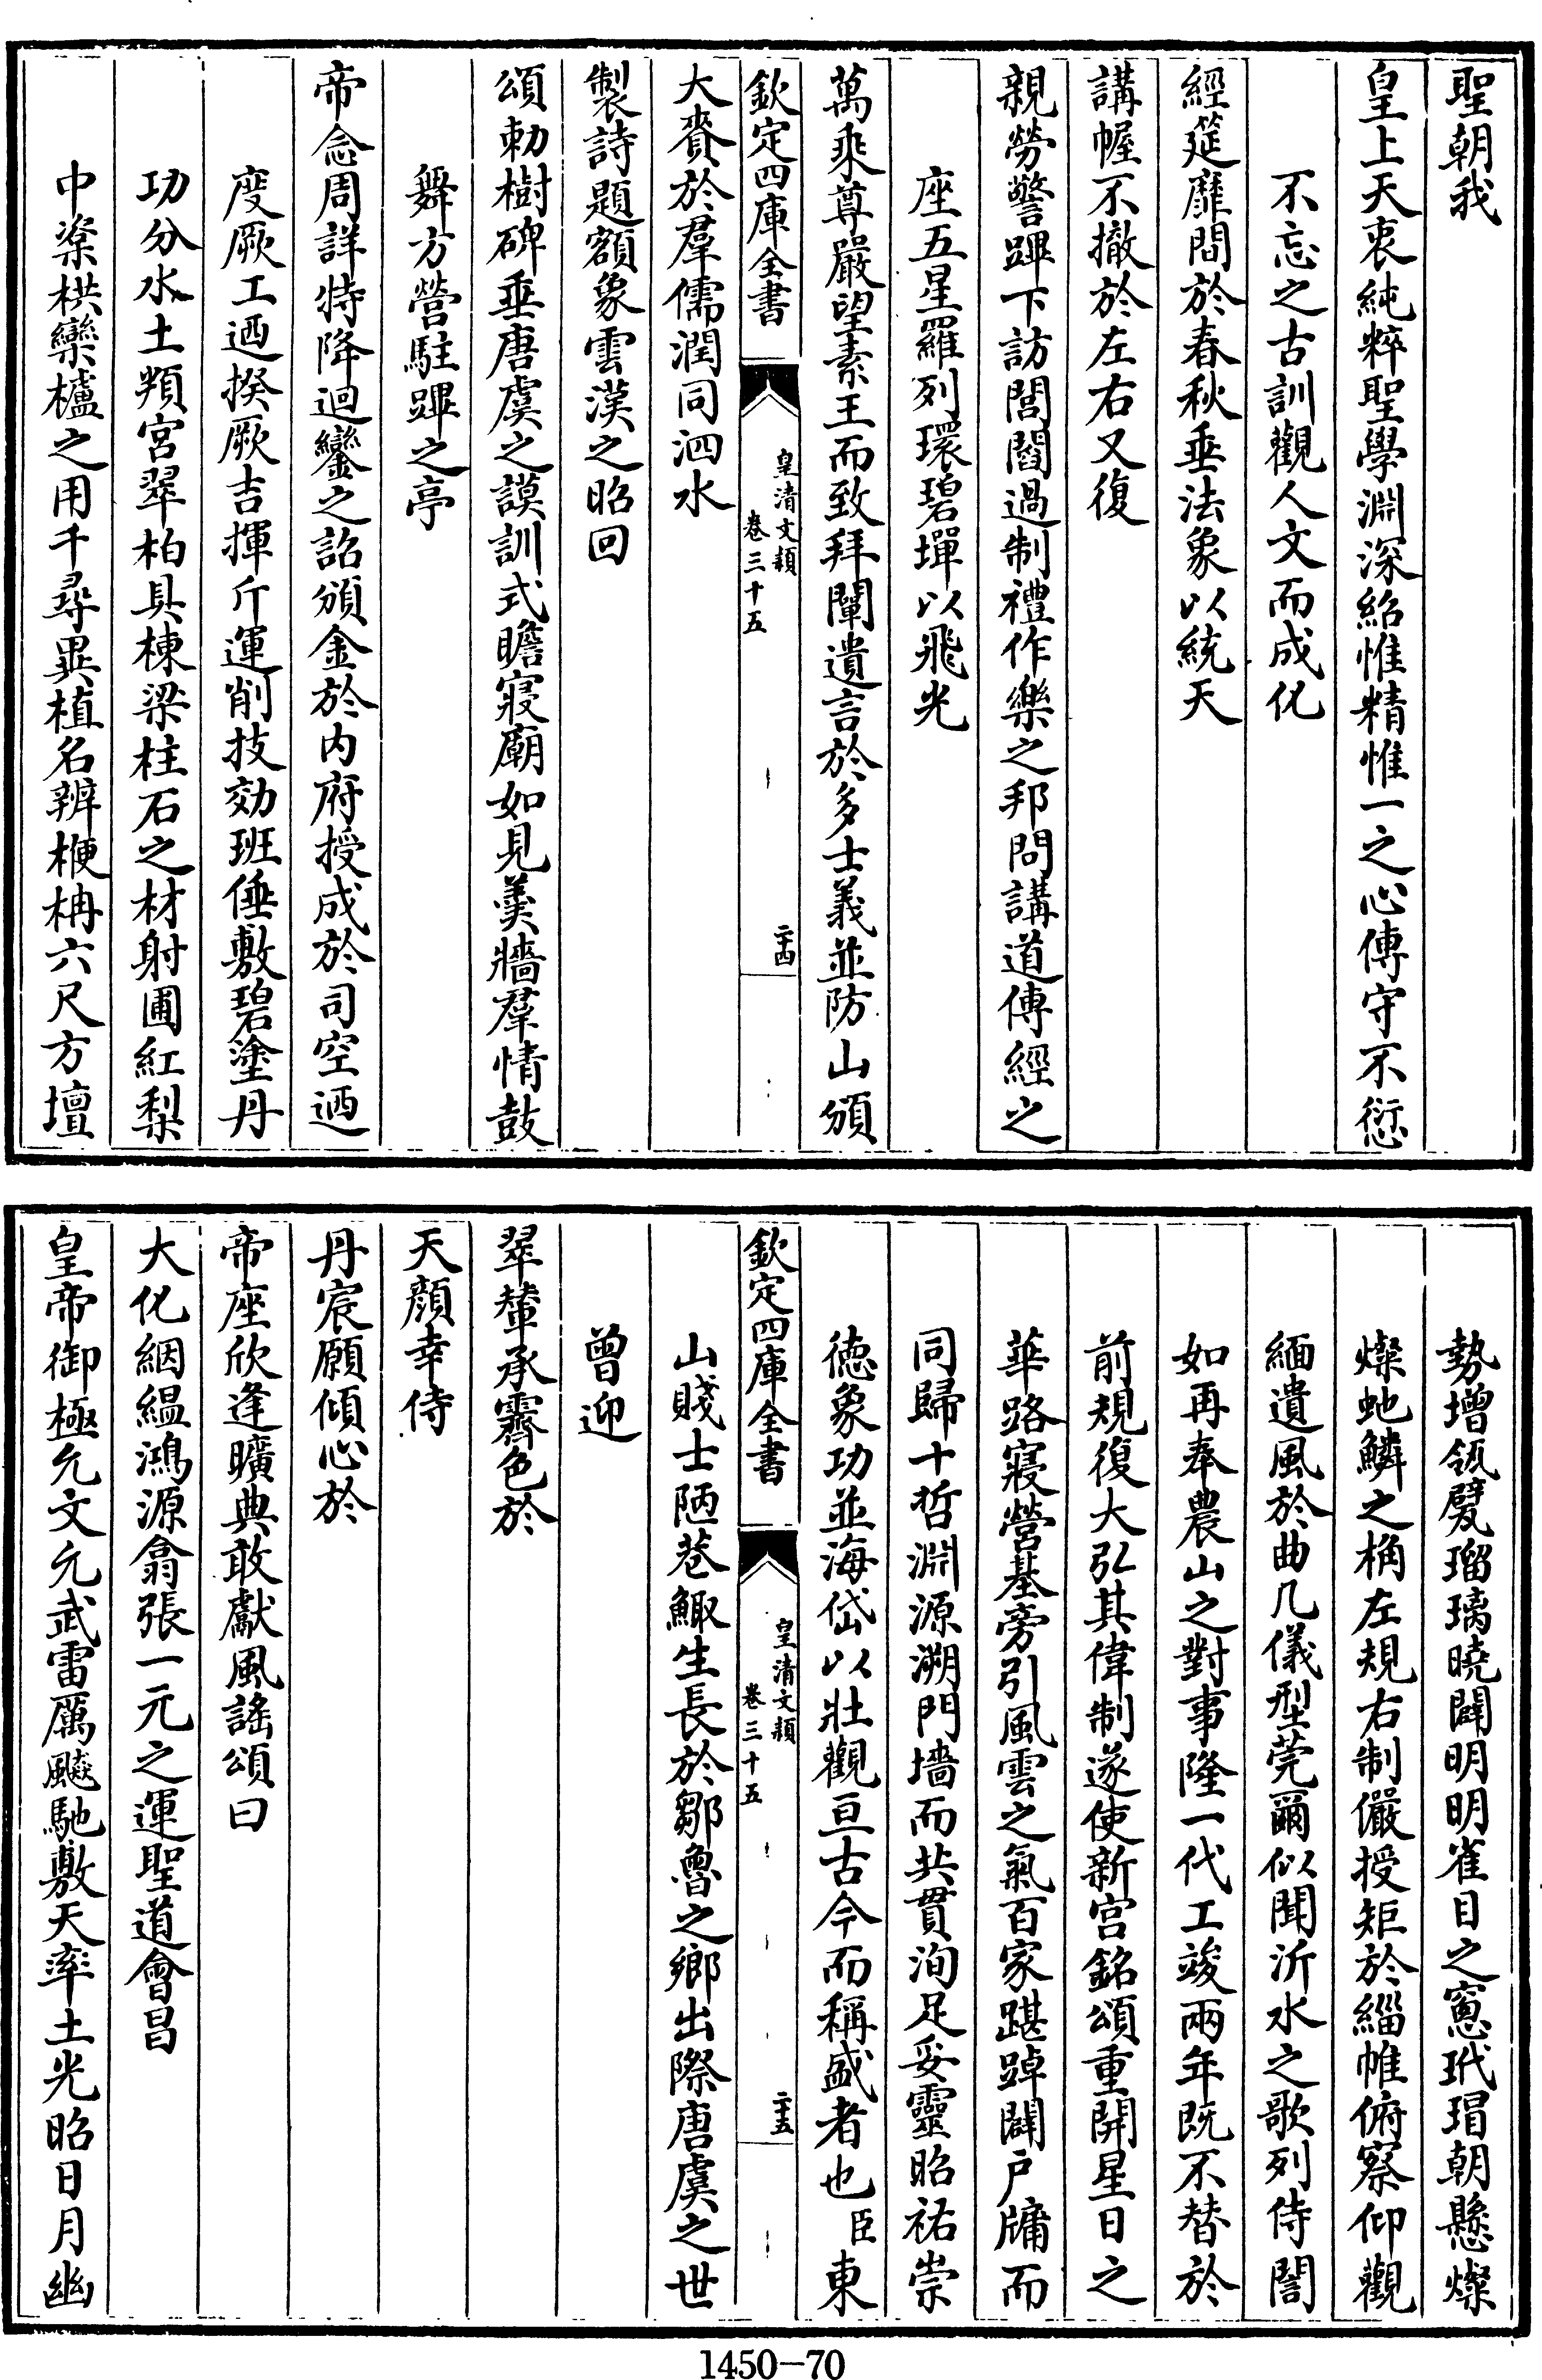 聖朝我
皇上天衷純粹聖學淵深紹惟精惟一之心傳守不愆
不忘之古訓觀人文而成化
經筵靡間於春秋垂法象以統天
講幄不撤於左右又復
親勞警蹕下訪閭閻過制禮作樂之邦問講道傳經之
座五星羅列環碧墠以飛光
萬乘尊嚴望素王而致拜闡遺言於多士義並防山頒
欽定四庫全書
皇清文穎
卷三十五
二十四
大賚於羣儒潤同泗水
製詩題額象雲漢之昭回
頌勅樹碑垂唐虞之謨訓式瞻寢廟如見羮牆羣情鼓
舞方營駐蹕之亭
帝念周詳特降迴鑾之詔頒金於內府授成於司空迺
度厥工迺揆厥吉揮斤運削技効班倕敷碧塗丹
功分水土頖宮翠柏具棟梁柱石之材射圃紅梨
中楶栱欒櫨之用千尋異植名辨楩柟六尺方壇
勢增瓴甓瑠璃曉闢明明雀目之窻玳瑁朝懸燦
燦虵鱗之桷左規右制儼授矩於緇帷俯察仰觀
緬遺風於曲几儀型莞爾似聞沂水之歌列侍誾
如再奉農山之對事隆一代工竣兩年既不替於
前規復大弘其偉制遂使新宮銘頌重開星日之
華路寢營基旁引風雲之氣百家踸踔闢戶牖而
同歸十哲淵源溯門墻而共貫洵足妥靈昭祐崇
德象功並海岱以壯觀亘古今而稱盛者也臣東
欽定四庫全書
皇清文穎
卷三十五
二十五
山賤士陋巷鯫生長於鄒魯之鄉出際唐虞之世
曾迎
翠輦承霽色於
天顏幸侍
丹宸願傾心於
帝座欣逢曠典敢獻風謠頌曰
大化絪緼鴻源翕張一元之運聖道會昌
皇帝御極允文允武雷厲飈馳敷天率土光昭日月幽
1450-70